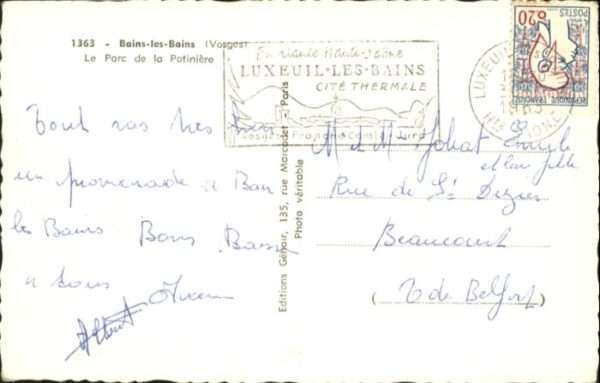 1363 - Bains-les-Bains (Vosges)
Le Parc de la Potinière
En visitant Haute-Saône
LUXEUIL-LES-BAINS
CITÉ THERMALE
Vosges Franche-Comté Jura
LUXEUIL
Hte SAONE
0,20
POSTES
REPUBLIQUE FRANÇAISE
Tout vas très bien
en promenade a Bain
les Bains Bons Baisers
a tous
Albert
Editions Génoir, 135, rue Marcadet - Paris
Photo véritable
M et Mme
et leur fille
Rue de St Dizier
Beaucourt
(T de Belfort)